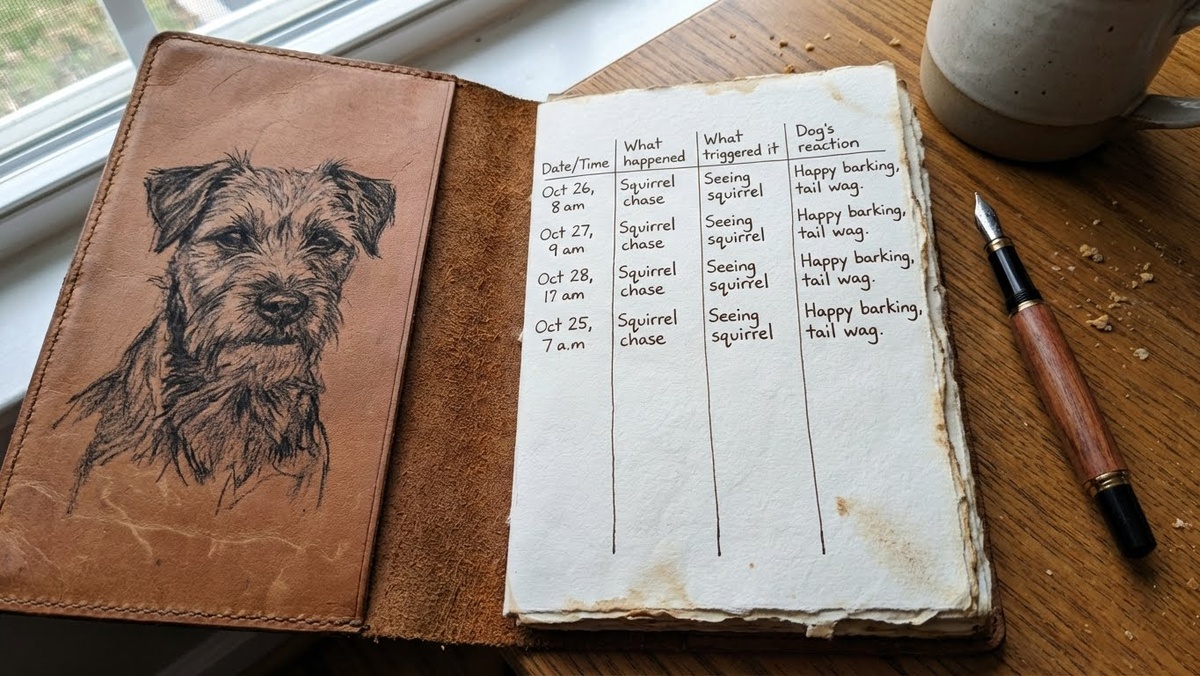 Date/Time | What happened | What triggered it | Dog's reaction
Oct 26, 8 am | Squirrel chase | Seeing squirrel | Happy barking, tail wag.
Oct 27, 9 am | Squirrel chase | Seeing squirrel | Happy barking, tail wag.
Oct 28, 17 am | Squirrel chase | Seeing squirrel | Happy barking, tail wag.
Oct 25, 7 a.m | Squirrel chase | Seeing squirrel | Happy barking, tail wag.